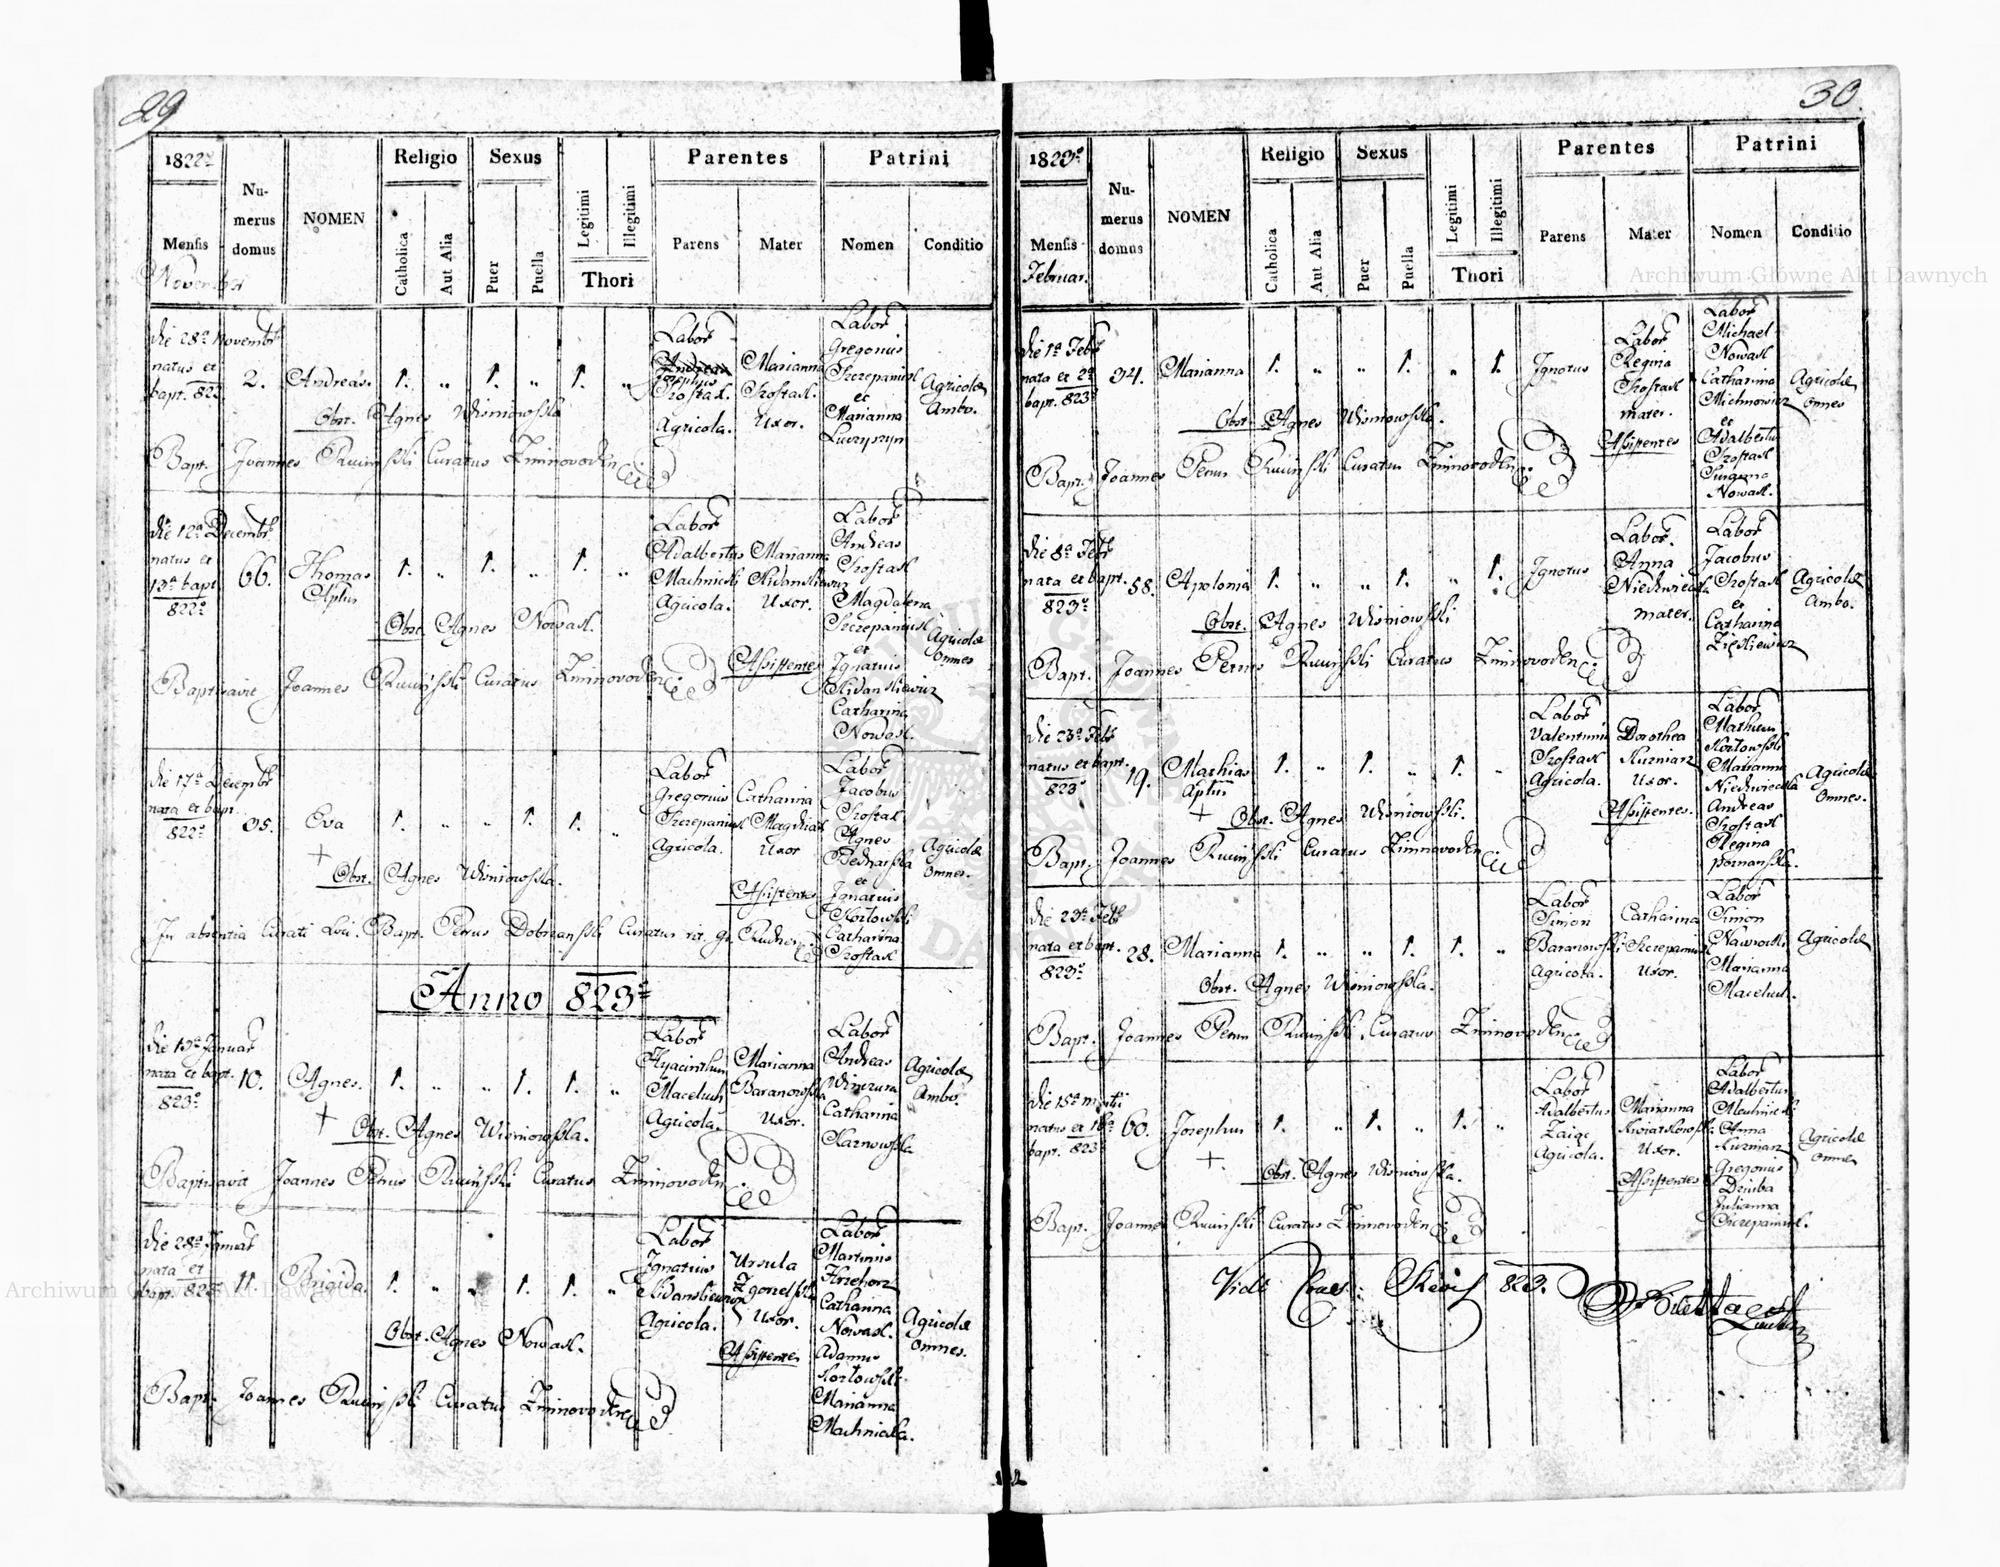 29
1822
Mensis
November
Numerus domus
NOMEN
Religio
Catholica
Aut Alia
Sexus
Puer
Puella
Legitimi
Illegitimi
Thori
Parentes
Parens
Mater
Patrini
Nomen
Conditio
die 28a Novembr
natus et
bapt. 822
2.
Andreas.
1. „ 1. „ 1. „
Labor
Josephus
Szostak.
Agricola.
Marianna
Szostak.
Uxor.
Labor
Gregorius
Szczepaniak
et
Marianna
Agricolæ
Ambo.
Obst. Agnes Wisniowska
Bapt. Joannes Curatus Zminovoden
die 12a Decembr
natus et
13a bapt
822
66.
Thomas
Aplus
1. „ 1. „ 1. „
Labor
Adalbertus
Machnicki
Agricola.
Marianna
Uxor.
Assistentes
Labor
Andreas
Szostak
Magdalena
Szczepaniak
et
Ignatius
Catharina
Nowak.
Agricolæ
omnes
Obst. Agnes Nowak.
Baptisavit Joannes Curatus Zminovoden
die 17a Decembr
nata et bapt.
822
35.
Eva
1. „ „ 1. 1. „
Labor
Gregorius
Szczepaniak
Agricola.
Catharina
Uxor
Assistentes
Labor
Jacobus
Szostak
Agnes
Bednarska
et
Ignatius
Kozlowski
Catharina
Szostak
Agricolæ
omnes.
Obst. Agnes Wisniowska.
In absentia Curati Loci. Bapt. Petrus Dobrzanski Curatus rit. gr.
Anno 823
die 13a Januar
nata et bapt.
823
10.
Agnes.
1. „ „ 1. 1. „
Labor
Hyacinthus
Maceluch
Agricola.
Marianna
Baranowska
Uxor.
Labor
Andreas
Catharina
Agricolæ
Ambo.
Obst. Agnes Wisniowska.
Baptisavit Joannes Petrus Curatus Zminovoden
die 28a Januar
nata et
bapt. 823
11.
Brigida.
1. „ „ 1. 1. „
Labor
Ignatius
Agricola.
Ursula
Uxor.
Assistentes
Labor
Martinus
Catharina
Nowak.
Adamus
Kozlowski
Marianna
Machnicka.
Agricolæ
omnes.
Obst. Agnes Nowak.
Bapt. Joannes Curatus Zminovoden
30.
1823
Mensis
Februar.
Numerus domus
NOMEN
Religio
Catholica
Aut Alia
Sexus
Puer
Puella
Legitimi
Illegitimi
Thori
Parentes
Parens
Mater
Patrini
Nomen
Conditio
die 1a Febr
nata et 2a
bapt. 823
34.
Marianna
1. „ „ 1. „ 1.
Ignotus
Labor
Regina
Szostak
mater.
Assistentes
Labor
Michael
Nowak
Catharina
Michnowicz
et
Adalbertus
Szostak
Nowak.
Agricolæ
omnes
Obst. Agnes Wisniowska.
Bapt. Joannes Petrus Curatus Zminovoden
die 8a Febr
nata et bapt.
823
58.
Apolonia
1. „ „ 1. „ 1.
Ignotus
Labor.
Anna
mater.
Labor
Jacobus
Szostak
et
Catharina
Agricolæ
Ambo.
Obst. Agnes Wisniowski
Bapt. Joannes Petrus Curatus Zminovoden
die 23a Febr
natus et bapt.
823
19.
Mathias
Aplus
1. „ 1. „ 1. „
Labor
Valentinus
Szostak
Agricola.
Dorothea
Kuzniar
Uxor.
Assistentes.
Labor
Mathæus
Kozlowski
Marianna
Andreas
Szostak
Regina
Poznanska.
Agricolæ
omnes.
Obst. Agnes Wisniowski.
Bapt. Joannes Curatus Zminovoden
die 23a Febr
nata et bapt.
823
28.
Marianna
1. „ „ 1. 1. „
Labor
Simon
Baranowski
Agricola.
Catharina
Szczepaniak
Uxor.
Labor
Simon
Nawrocki
Marianna
Maceluch.
Agricolæ
Obst. Agnes Wisniowska.
Bapt. Joannes Petrus Curatus Zminovoden
die 15a Martii
natus et 16a
bapt. 823
60.
Josephus
1. „ 1. „ 1. „
Labor
Adalbertus
Zając
Agricola.
Marianna
Kwiatkowska
Uxor.
Assistentes
Labor
Adalbertus
Anna
Kuzniar
Gregorius
Dziuba
Julianna
Szczepaniak.
Agricolæ
omnes
Obst. Agnes Wisniowska.
Bapt. Joannes Curatus Zminovoden
823.
Archiwum Główne Akt Dawnych
Archiwum Główne Akt Dawnych